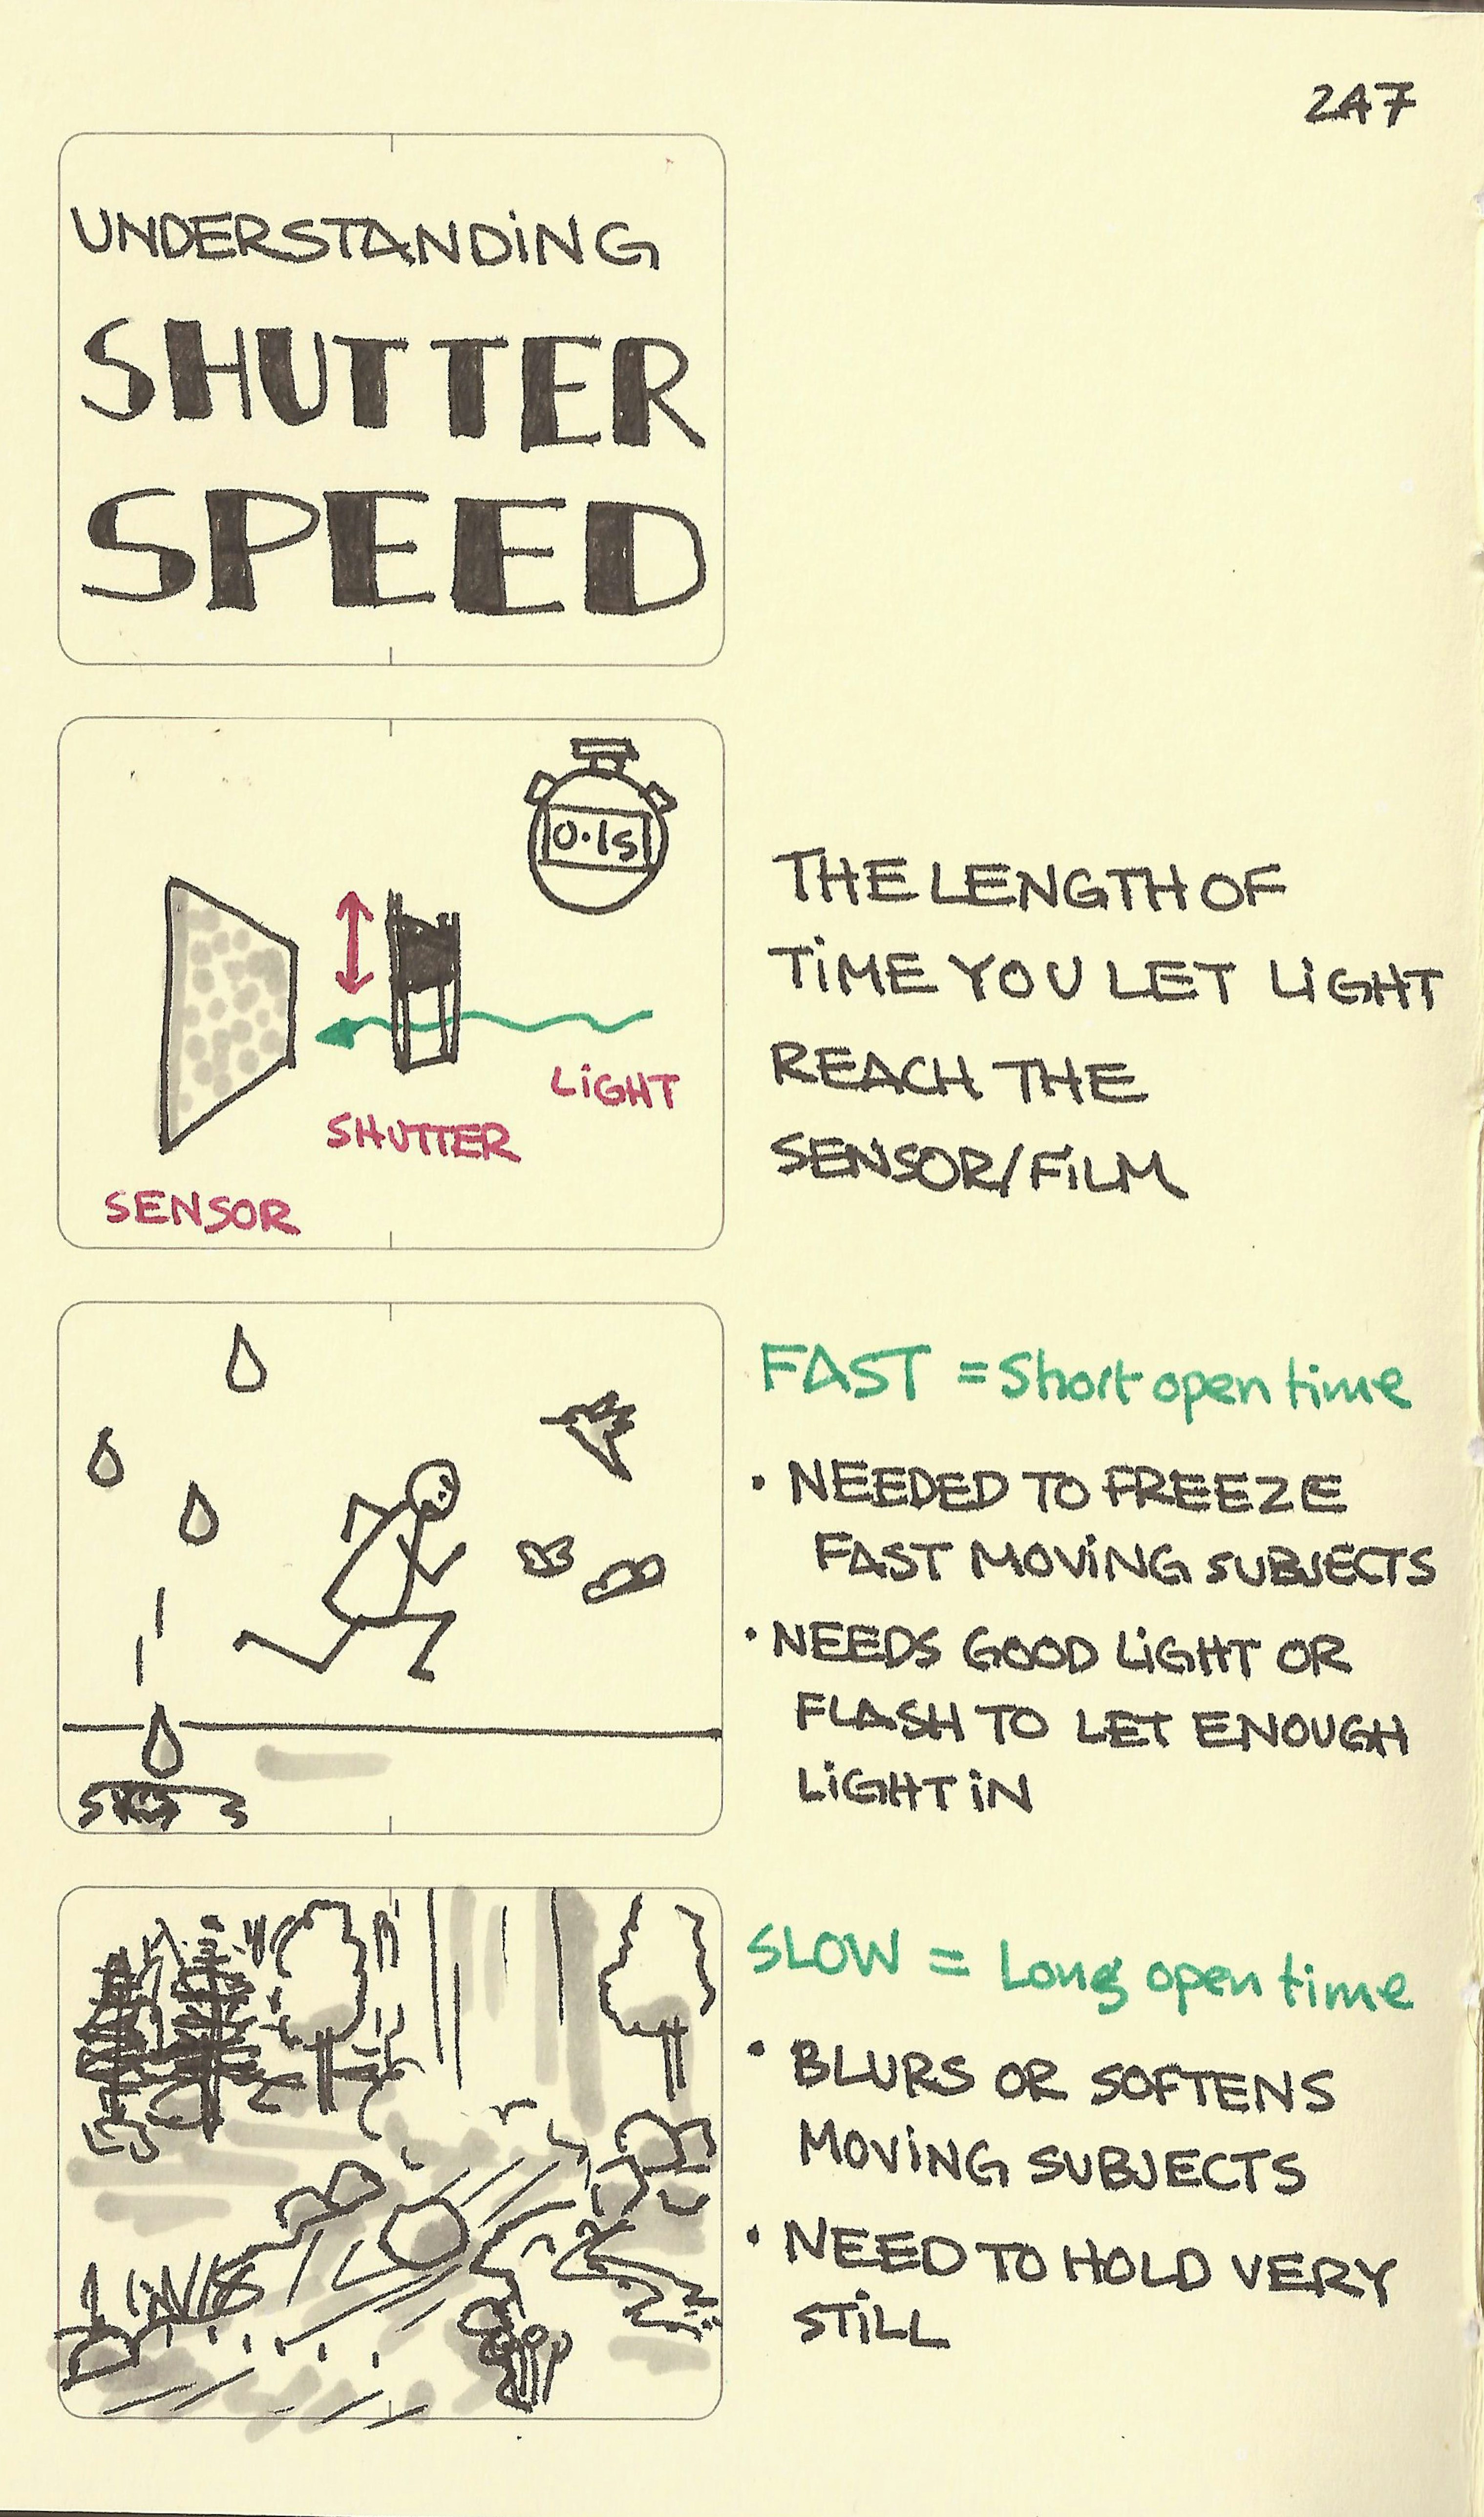 247
UNDERSTANDING
SHUTTER
SPEED
0.1s
LIGHT
SHUTTER
SENSOR
THE LENGTH OF
TIME YOU LET LIGHT
REACH THE
SENSOR/FILM
FAST = Short open time
• NEEDED TO FREEZE
FAST MOVING SUBJECTS
• NEEDS GOOD LIGHT OR
FLASH TO LET ENOUGH
LIGHT IN
SLOW = Long open time
• BLURS OR SOFTENS
MOVING SUBJECTS
• NEED TO HOLD VERY
STILL